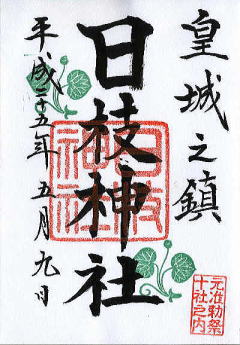 皇城之鎮
日枝神社
平成二十五年五月九日
日枝神社
元准勅祭
十社之内